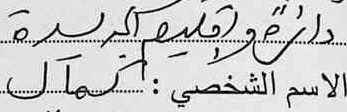 دائرة وإقليم الجديدة
الاسم الشخصي : كمال